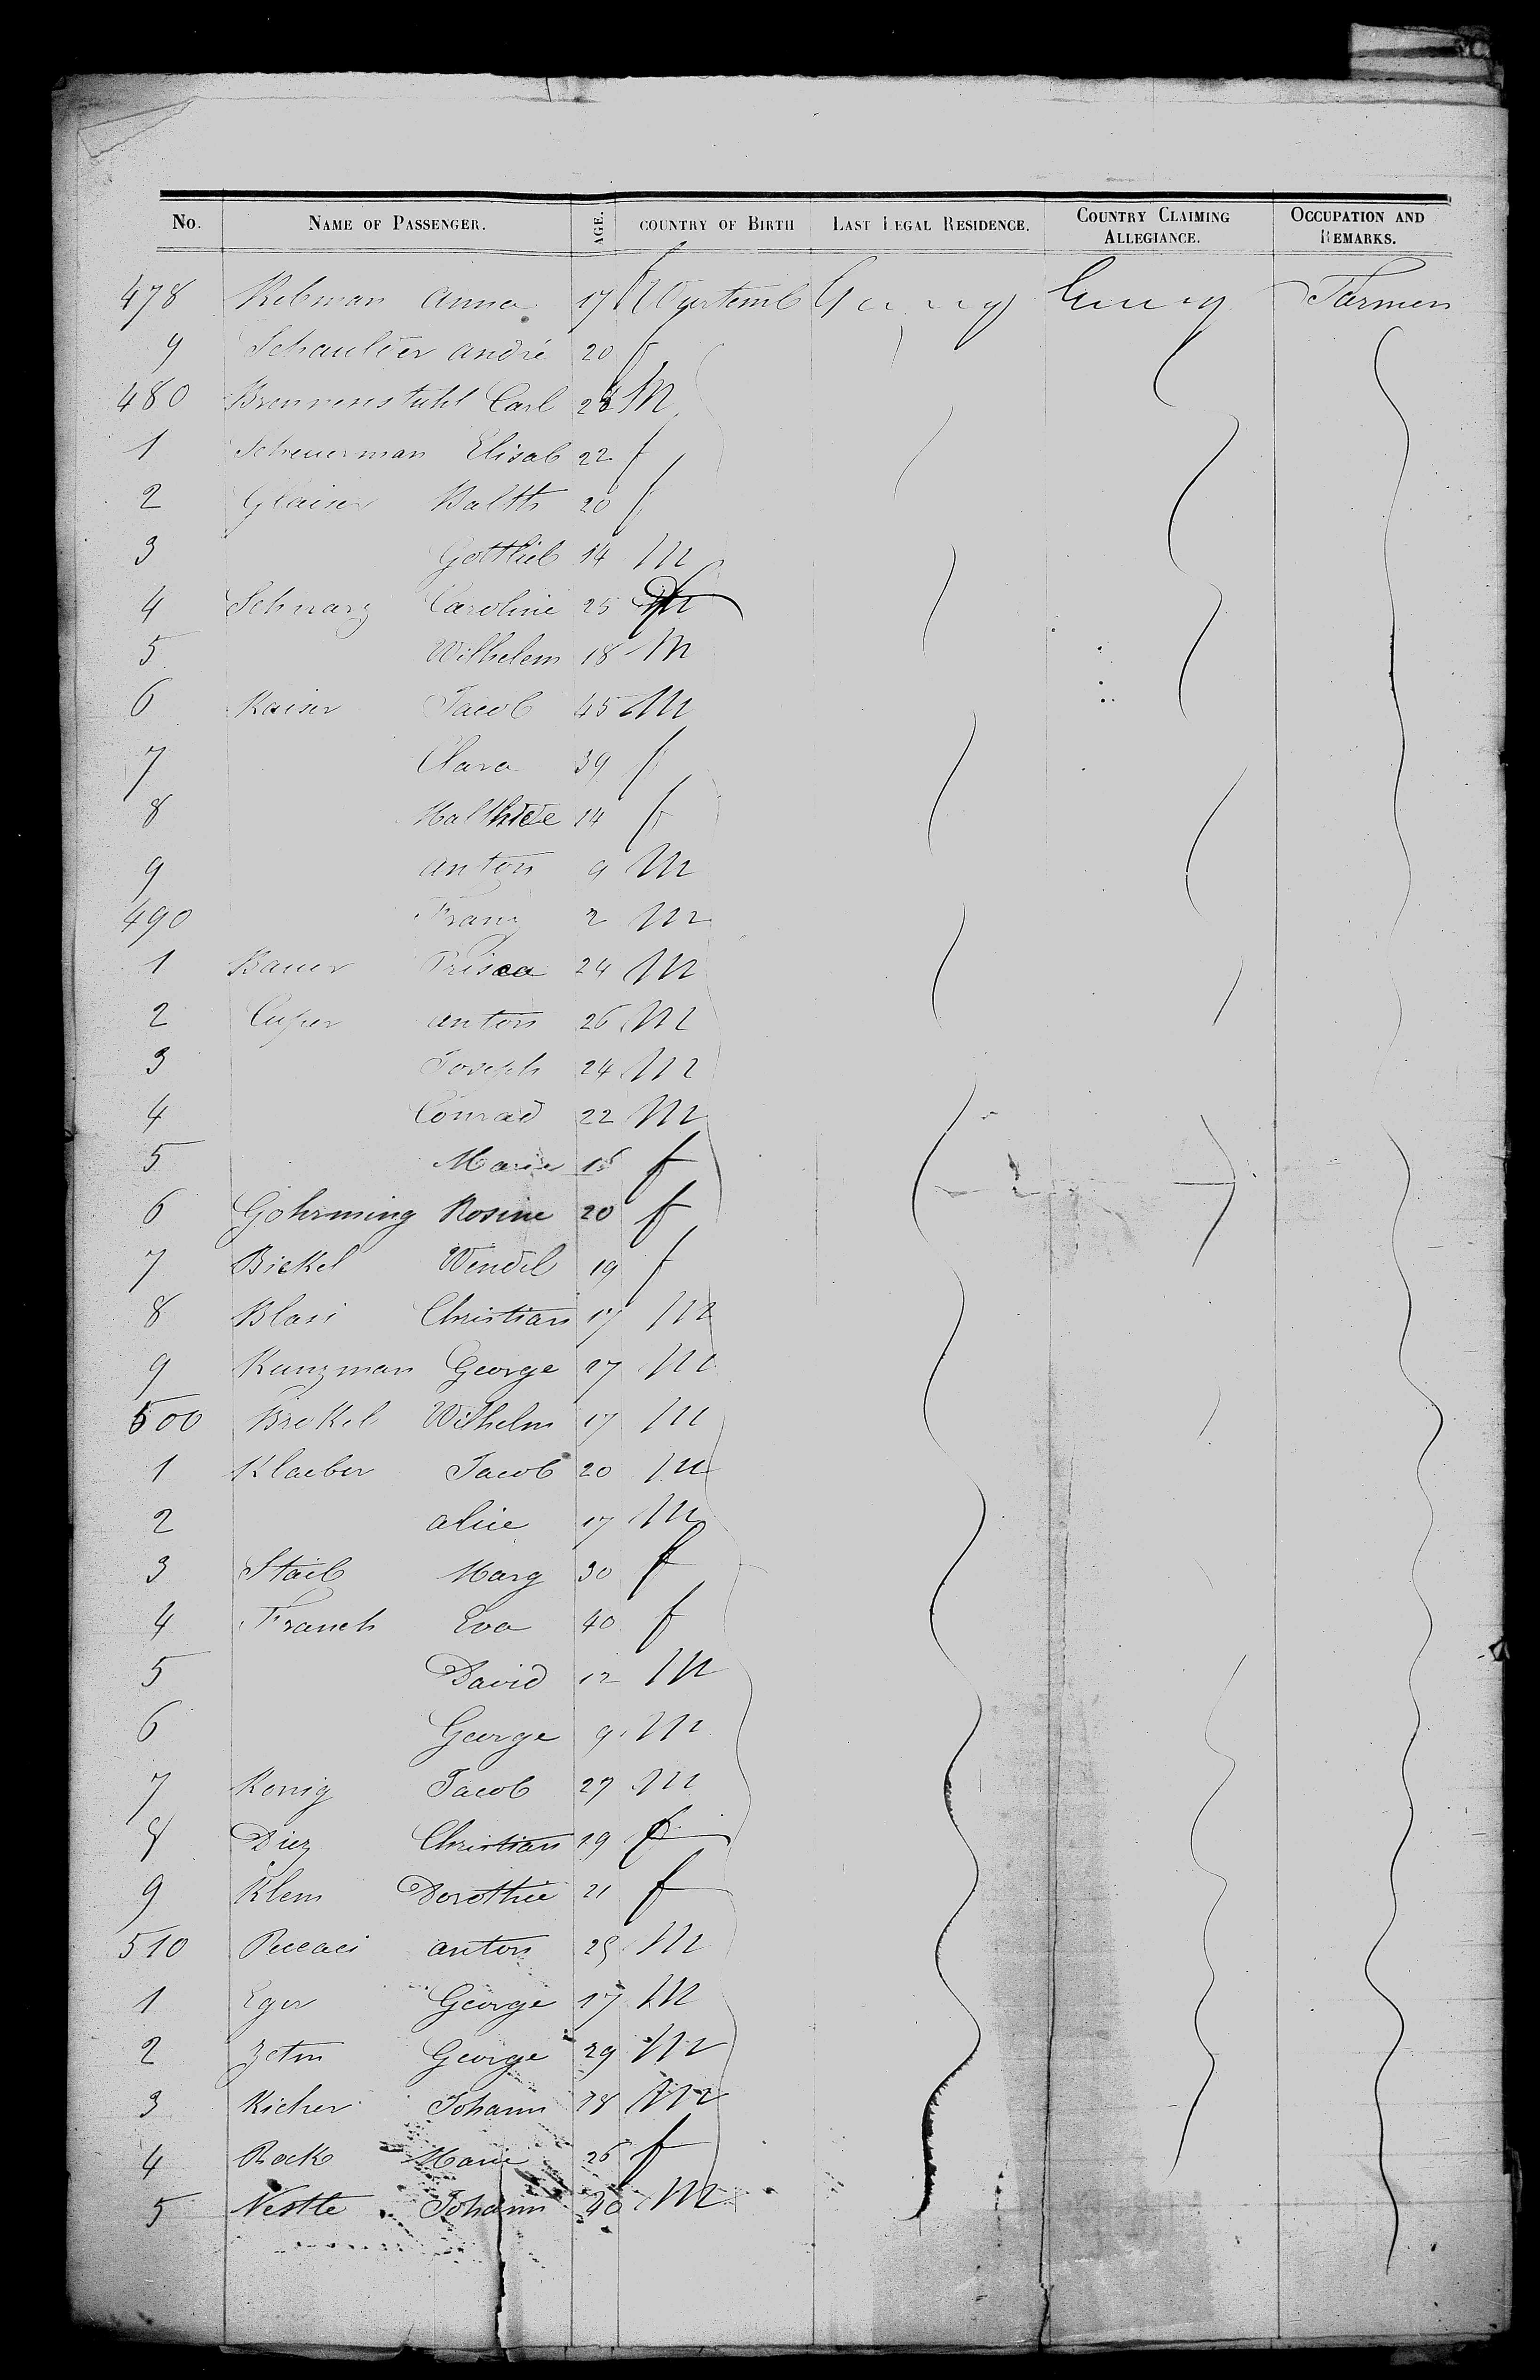 No. NAME OF PASSENGER. AGE. COUNTRY OF BIRTH LAST LEGAL RESIDENCE. COUNTRY CLAIMING ALLEGIANCE. OCCUPATION AND REMARKS.
478 Rebman Anna 17 f Wurtemb Farmer
9 andré 20 f
480 Brennenstuhl Carl 28 M
1 Scheuerman Elisab 22 f
2 Glaiser Balth 20 f
3 Gottlieb 14 M
4 Schwarz Caroline 25 f
5 Wilhelem 18 M
6 Kaiser Jacob 45 M
7 Clara 39 f
8 14 f
9 anton 9 M
490 Franz 2 M
1 Bauer Prisca 24 M
2 Cuper anton 26 M
3 Joseph 24 M
4 Conrad 22 M
5 Marie f
6 Gohrming Rosine 20 f
7 Bickel Wendel 19 f
8 Blasi Christian 17 M
9 Kunzman George 27 M
500 Brekel Wilhelm 17 M
1 Klaeber Jacob 20 M
2 alice 17 M
3 Staib Marg 30 f
4 Franch Eva 40 f
5 David 12 M
6 George 9 M
7 Konig Jacob 27 M
8 Diez Christian 29 f
9 Klem Dorothie 21 f
510 anton 25 M
1 Eger George 17 M
2 George 29 M
3 Kicher Johann 28 M
4 Rock Marie 26 f
5 Nestle Johann 40 M